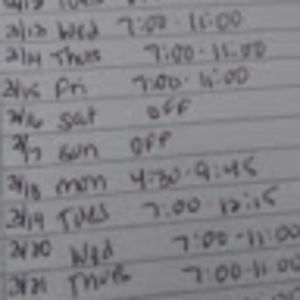 2/13 Wed 7:00-11:00
2/14 Thurs 7:00-11:00
2/15 Fri 7:00-11:00
2/16 Sat OFF
2/17 Sun OFF
2/18 Mon 4:30-9:45
2/19 Tues 7:00 12:15
2/20 Wed 7:00-11:00
2/21 Thurs 7:00-11:00